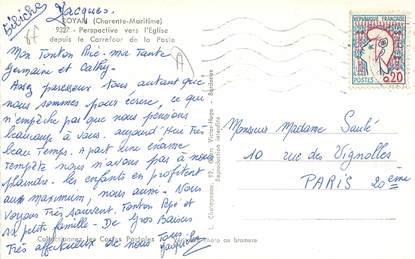 Jacques.
ROYAN (Charente-Maritime)
9227 - Perspective vers l'Eglise
depuis le Carrefour de la Poste
Mon Tonton Riri - ma Tante
Germaine et Cathy.
paresseux tous autant que
nous sommes pour écrire, ce qui
n'empêche pas que nous pensions
beaucoup à vous. aujourd'hui très
beau Temps. A part une énorme
tempête nous n'avons pas à nous
plaindre. les enfants en profitent
aux maximum, nous aussi. Nous
voyons Très souvent Tonton Pépé et
sa petite famille. De Gros Baisers
Très affectueux de nous Tous.
REPUBLIQUE FRANÇAISE
POSTES
0,20
Monsieur Madame
10 rue des Vignolles
PARIS 20ème
Reproduction interdite
Véritable photo au bromure